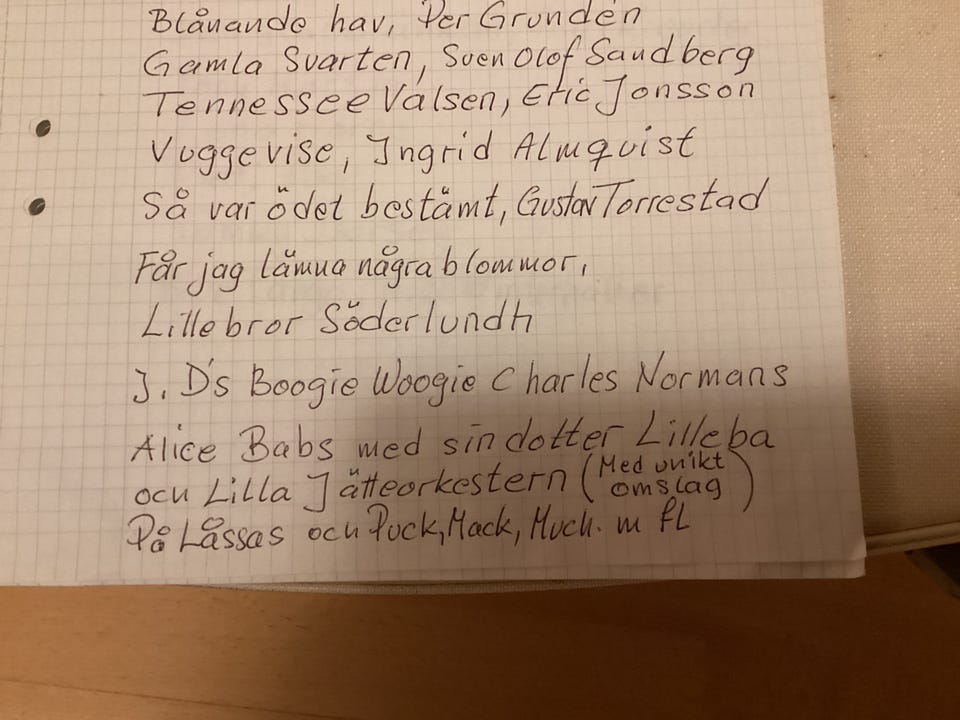 Blånande hav, Per Grundén
Gamla Svarten, Sven Olof Sandberg
Tennessee Valsen, Eric Jonsson
Vuggevise, Ingrid Almquist
Så var ödet bestämt, Gustav Torrestad
Får jag lämna några blommor,
Lillebror Söderlundh
J. D's Boogie Woogie Charles Normans
Alice Babs med sin dotter Lilleba
och Lilla Jätteorkestern (Med unikt
omslag)
På Låssas och Puck, Mack, Much. m fl